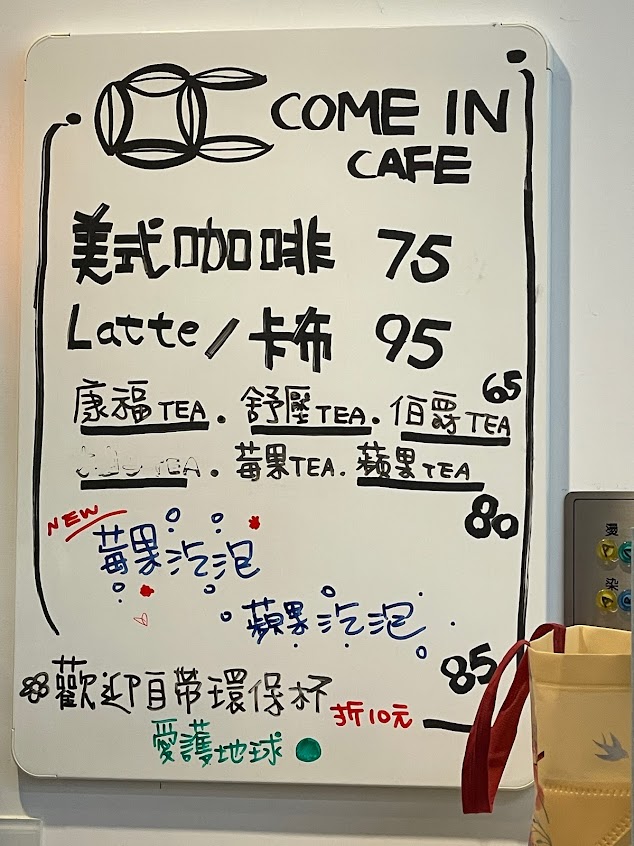 COME IN
CAFE
美式咖啡 75
Latte/卡布 95
65
康福TEA.舒壓TEA.伯爵TEA
TEA.莓果TEA.蘋果TEA
80
NEW
莓果汽泡
蘋果汽泡
85
歡迎自帶環保杯 折10元
愛護地球
燙
染